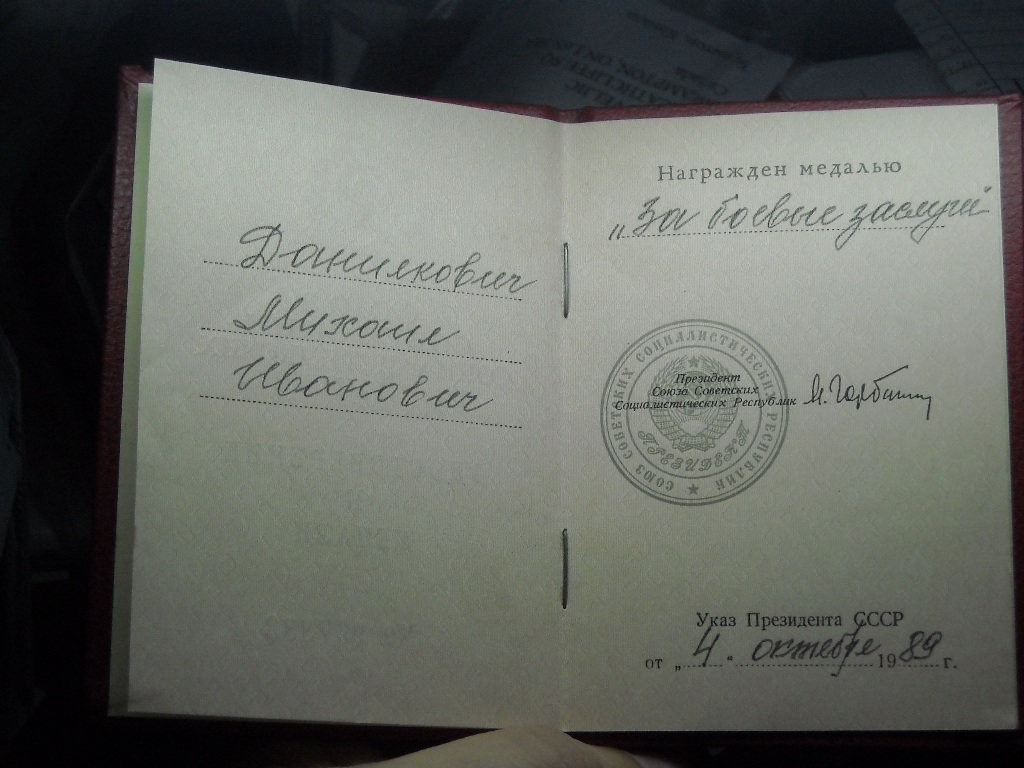 Данилкович
Михаил
Иванович
Награжден медалью
„За боевые заслуги"
СОЮЗ СОВЕТСКИХ СОЦИАЛИСТИЧЕСКИХ РЕСПУБЛИК
ПРЕЗИДЕНТ
Президент
Союза Советских
Социалистических Республик М. Горбачев
Указ Президента СССР
от „4" октября 1989 г.